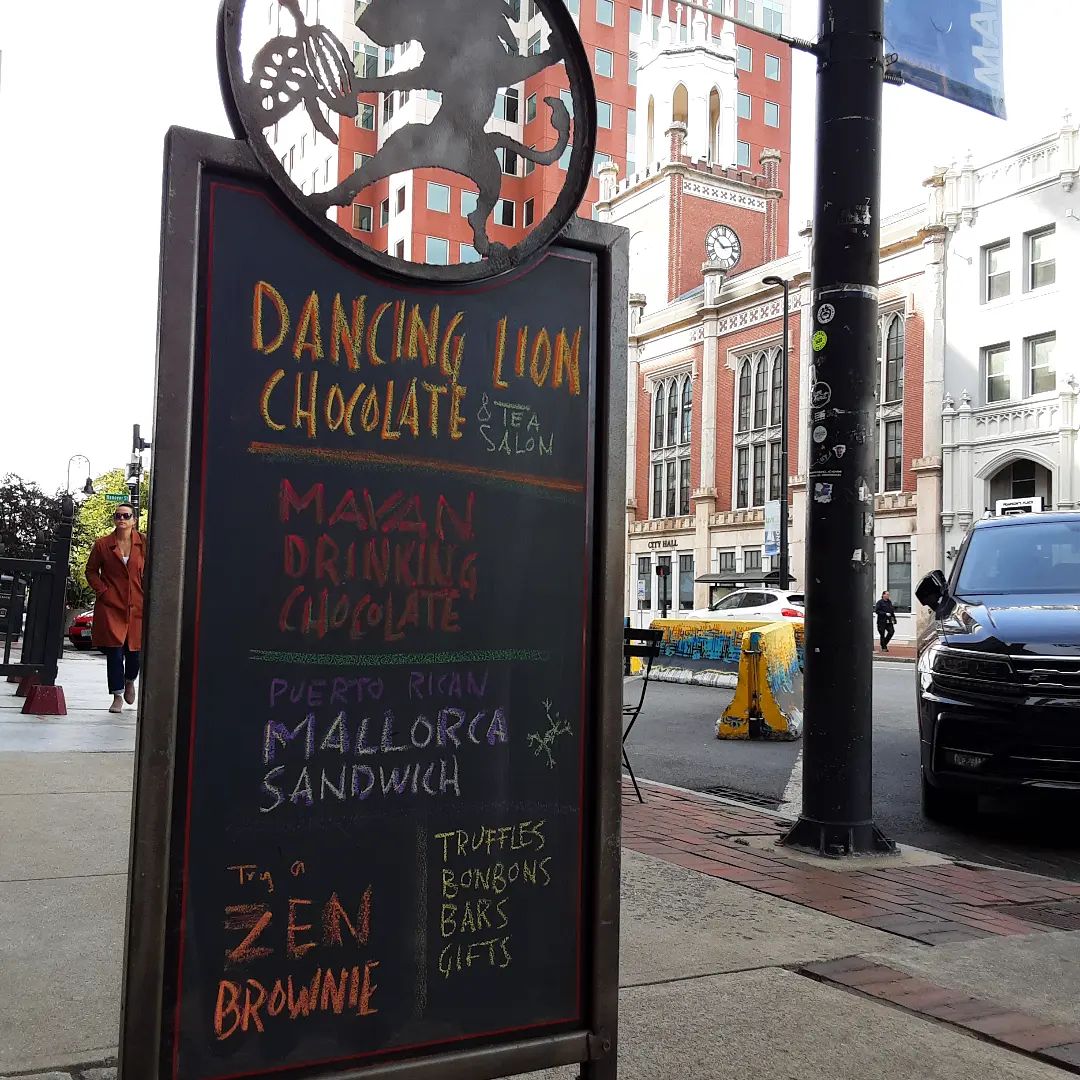 DANCING LION
CHOCOLATE
& TEA
SALON
MAYAN
DRINKING
CHOCOLATE
PUERTO RICAN
MALLORCA
SANDWICH
Try a
ZEN
BROWNIE
TRUFFLES
BONBONS
BARS
GIFTS
CITY HALL
Hanover St